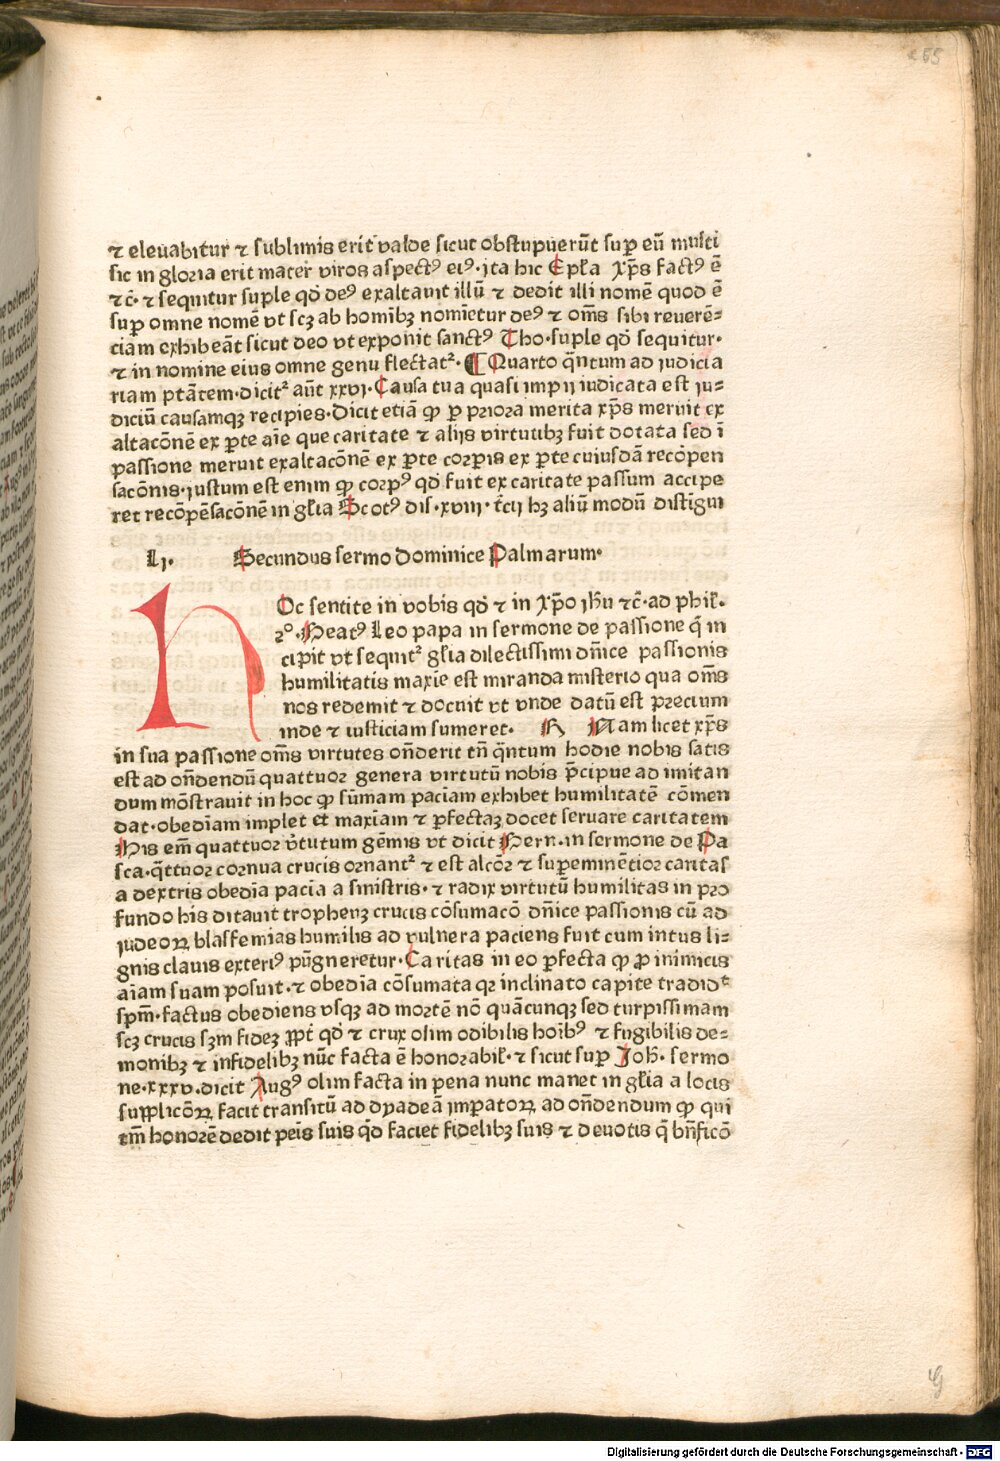 ⁊ eleuabitur ⁊ sublimis erit valde sicut obstupuerūt sup̱ eū multi
sic in gloria erit mater viros aspectꝰ eiꝰ·ita hic Ep̄ła xp̄s factꝰ ē
⁊c̄·⁊ sequitur suple qd̓ deꝰ exaltauit illū ⁊ dedit illi nomē quod ē
sup̱ omne nomē vt scꝫ ab homibꝫ nomīetur deꝰ ⁊ om̄s sibi reuerē=
ciam exhibeāt sicut deo vt exponit sanctꝰ Tho·suple qd̓ sequitur·
⁊ in nomine eius omne genu flectat᷑·¶ Quarto q̄ntum ad iudicia
riam ptātem·dicit᷑ aūt xxvj·Causa tua quasi impij iudicata est iu=
diciū causamqꝫ recipies·Dicit etiā ꝙ ꝑ priora merita xp̄s meruit ex
altacōnē ex ꝑte aīe que caritate ⁊ alijs virtutibꝫ fuit dotata sed ī
passione meruit exaltacōnē ex ꝑte corꝑis ex ꝑte cuiusdā recōpen
sacōnis·iustum est enim ꝙ corpꝰ qd̓ fuit ex caritate passum accipe
ret recōpēsacōnē in gl̄ia Scotꝰ dis·xviij·t̄cij hꝫ aliū modū distīgui
Lj. Secundus sermo Dominice Palmarum·
Oc sentite in vobis qd̓ ⁊ in xp̄o jh̄u ⁊c̄·ad phil̓.
2°·Beatꝰ Leo papa in sermone de passione q̄ in
cipit vt sequit᷑ gl̄ia dilectissimi dn̄ice passionis
humilitatis maxīe est miranda misterio qua om̄s
nos redemit ⁊ docuit vt vnde datū est precium
inde ⁊ iusticiam sumeret. R Nam licet xp̄s
in sua passione om̄s virtutes on̄derit tn̄ q̄ntum hodie nobis satis
est ad on̄dendū quattuor genera virtutū nobis p̄cipue ad imitan
dum mōstrauit in hoc ꝙ sūmam paciam exhibet humilitatē cōmen
dat·obediam implet et maxiam ⁊ ꝑfectaꝫ docet seruare caritatem
His em̄ quattuor v̓tutum gēmis vt dicit Bern·in sermone de Pa
sca·q̄ttuor cornua crucis ornant᷑ ⁊ est alcōr ⁊ suꝑeminētior caritas
a dextris obedīa pacīa a sinistris·⁊ radix virtutū humilitas in pro
fundo his ditauit tropheuꝫ crucis cōsumacō dn̄ice passionis cū ad
iudeoꝝ blasfemias humilis ad vulnera paciens fuit cum intus li=
gnis clauis exteriꝰ pūgneretur·Caritas in eo ꝑfecta ꝙ ꝓ inimicis
aīam suam posuit·⁊ obedīa cōsumata qꝛ inclinato capite tradidᵗ
spm̄·factus obediens vsqꝫ ad mortē nō quācunqꝫ sed turpissimam
scꝫ crucis sꝫm fideꝫ ꝓpt̓ qd̓ ⁊ crux olim odibilis hoībꝰ ⁊ fugibilis de=
monibꝫ ⁊ infidelibꝫ nūc facta ē honorabil̓·⁊ sicut suꝑ Joh̄· sermo
ne·xxxv·dicit Augꝰ olim facta in pena nunc manet in gl̄ia a locis
supplicōꝝ facit transitū ad dyadeā imꝑatoꝝ ad on̄dendum ꝙ qui
tm̄ honorē dedit peīs suis qd̓ faciet fidelibꝫ suis ⁊ deuotis q̄ bn̄ficō
Digitalisierung gefördert durch die Deutsche Forschungsgemeinschaft - DFG